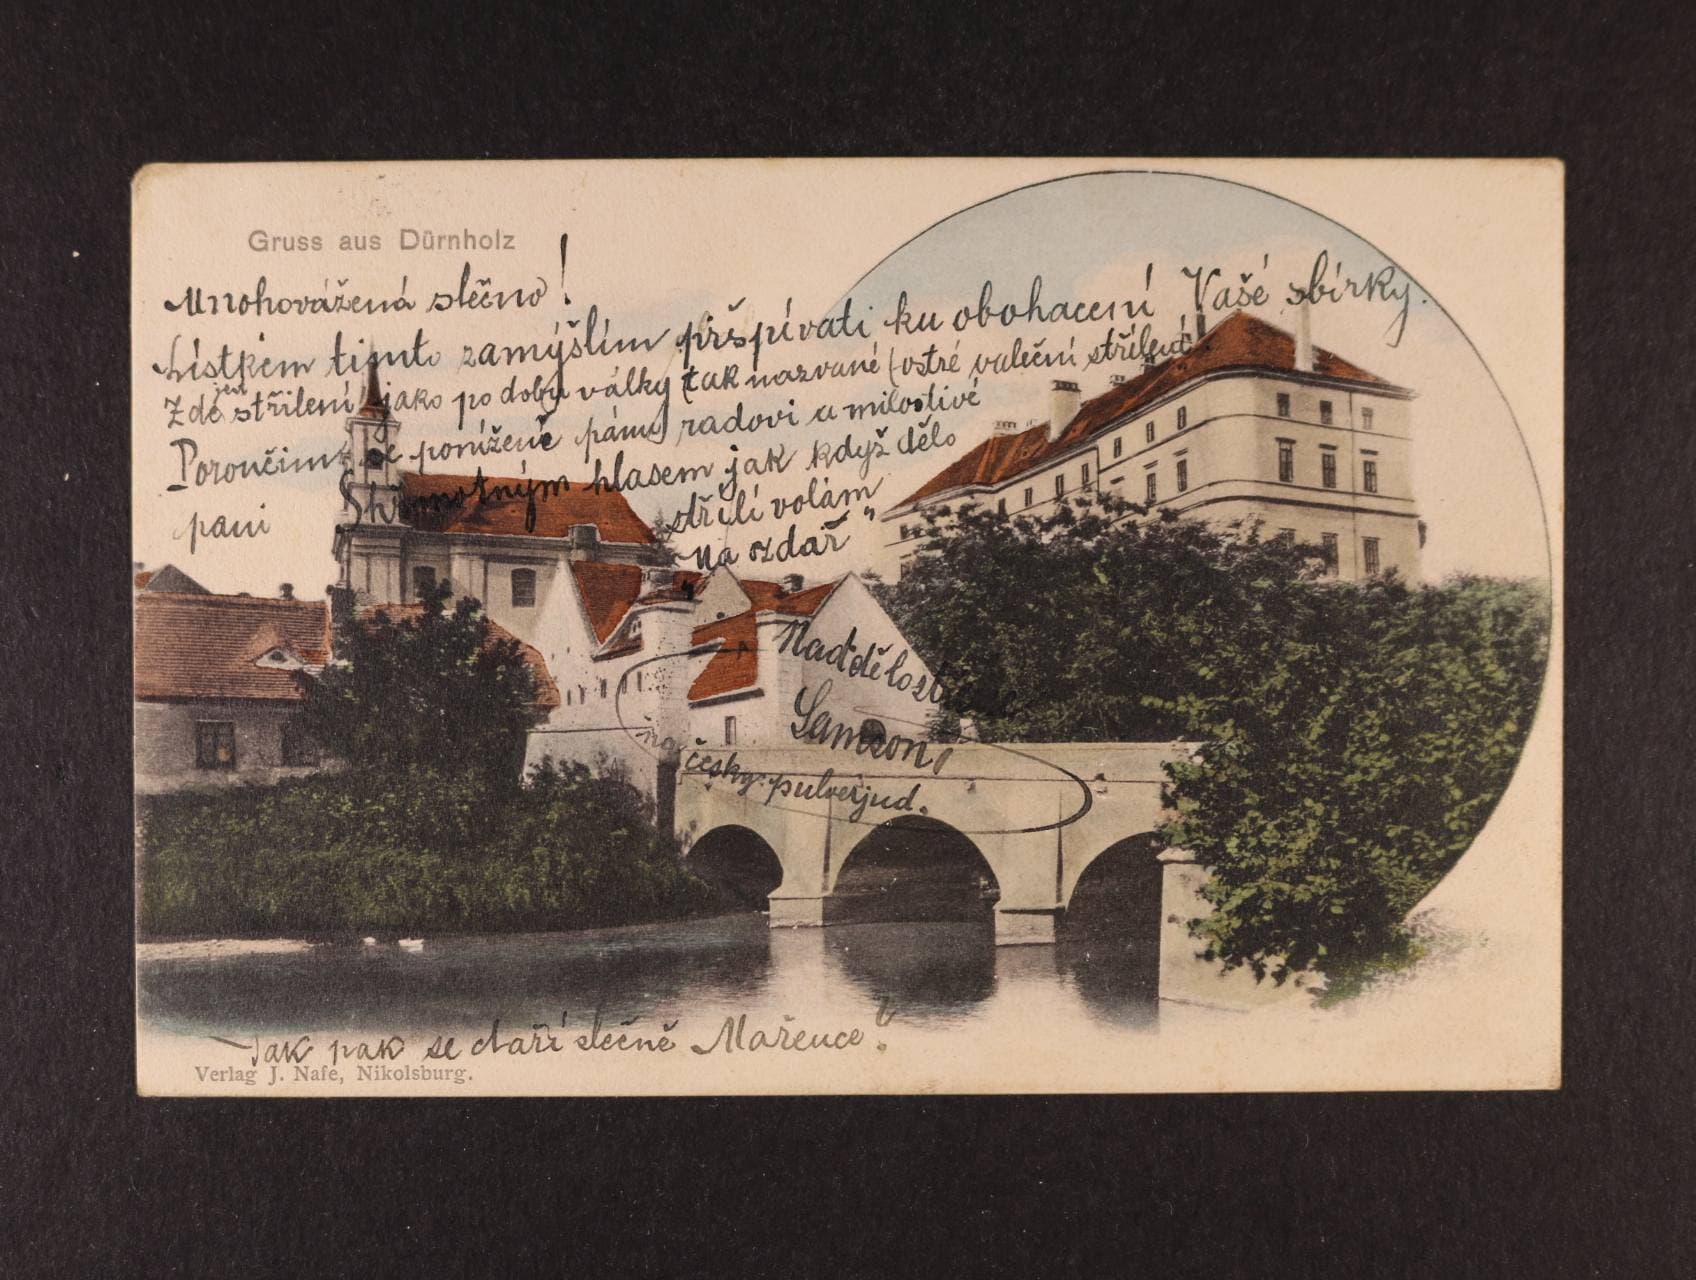 Gruss aus Dürnholz
Mnohovážená slečno!
Lístkem tímto zamýšlím přispívati ku obohacení Vaší sbírky.
Zde jest střílení jako po dobu války tak nazvané (ostré valeční střílení
Poroučím se poníženě pánu radovi a milostivé
paní
Stkřmotným hlasem jak když dělo
střílí volám
„na zdař"
Nad dělostřelec
Samson
na česky: pulverjud.
Jak pak se daří slečně Mařence?
Verlag J. Nafe, Nikolsburg.